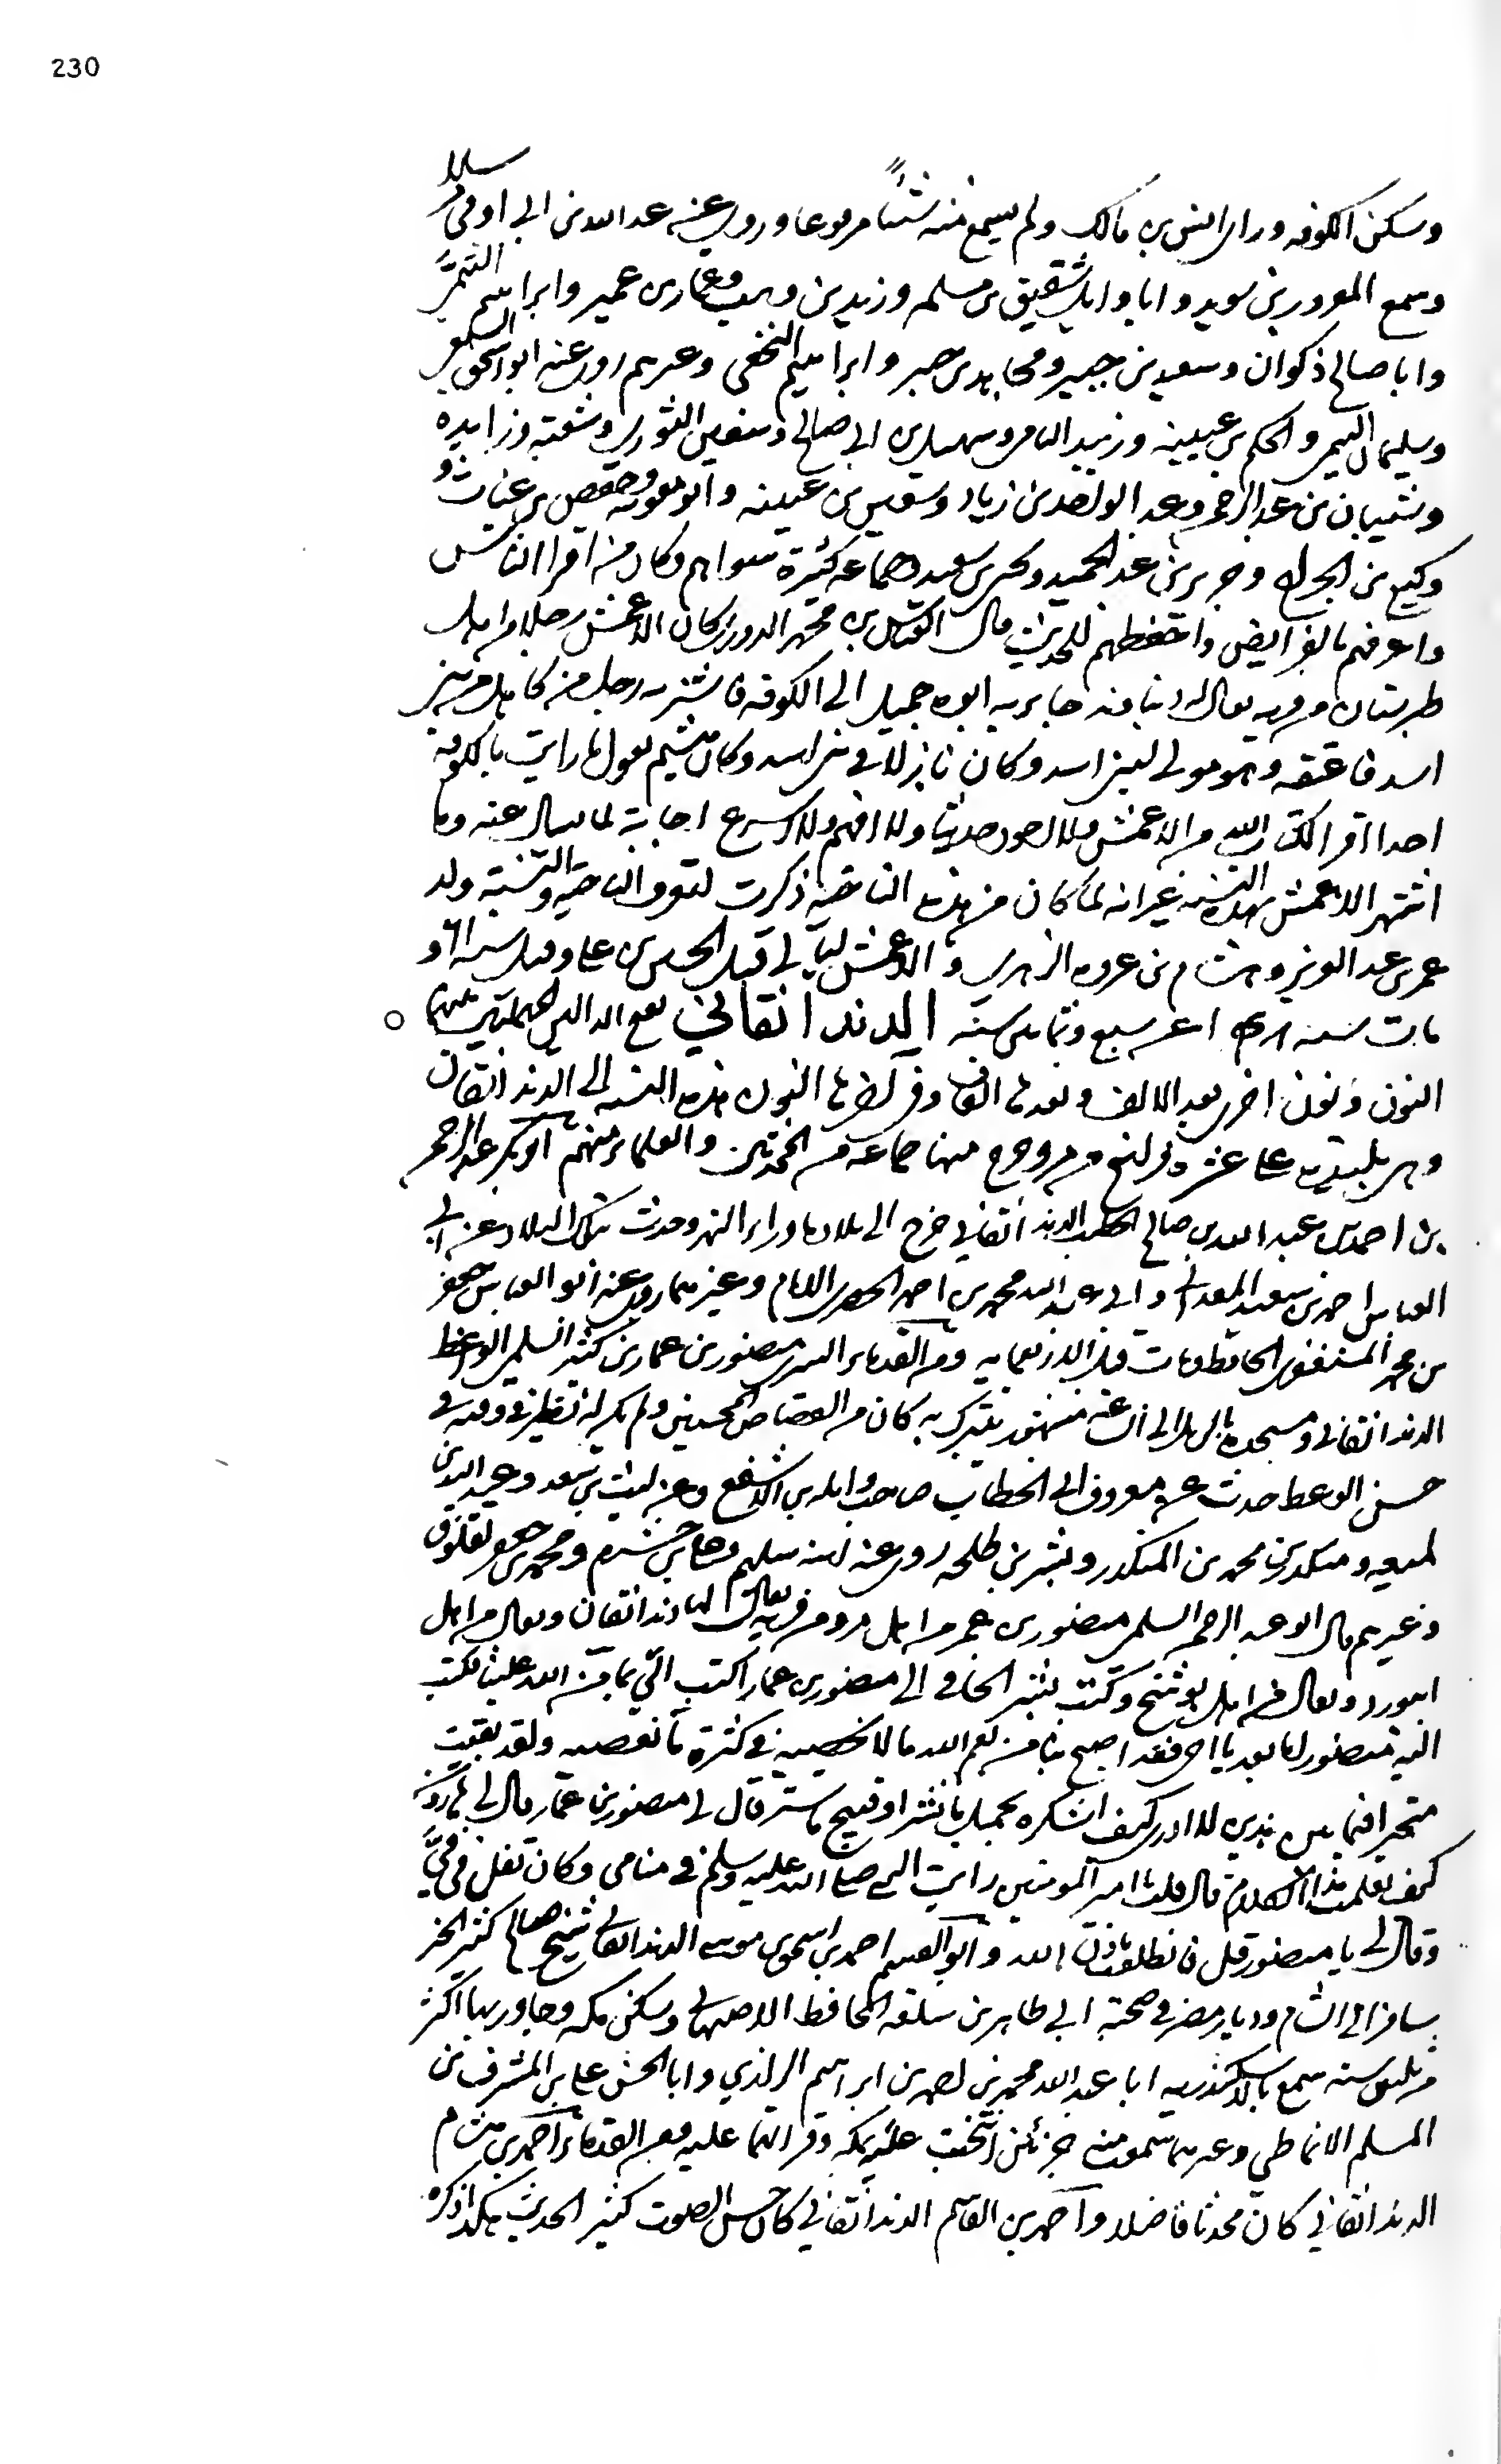 230
وسكن الكوفة وراى انس بن مالك ولم يسمع منه شيئا مرفوعا وروى عن عبد الله بن ابي اوفى مرسلا
وسمع المعرور بن سويد وابا وايل شقيق بن سلمة وزيد بن وهب وعمارة بن عمير وابراهيم التيمي
وابا صالح ذكوان وسعيد بن جبير ومجاهد بن جبر وابراهيم النخعي وغيرهم روى عنه ابو اسحق السبيعي
وسليمان التيمي والحكم بن عتيبة وزبيد اليامي وسهيل بن ابي صالح وسفين الثوري وشعبة وزايدة
وشيبان بن عبد الرحمن وعبد الواحد بن زياد وسفين بن عيينة وابو معوية وحفص بن غياث و
وكيع بن الجراح وجرير بن عبد الحميد ويحيى بن سعيد وجماعة كثيرة سواهم وكان من اقرا الناس
واعرفهم بالفرايض واحفظهم للحديث قال العباس بن محمد الدوري كان الاعمش رجلا من اهل
طبرستان من قرية يقال لها دنباوند جا به ابوه حميلا الى الكوفة فاشتراه رجل من كاهل من بني
اسد فاعتقه وهو مولى لبني اسد وكان نازلا في بني اسد وكان هشيم يقول ما رايت بالكوفة
احدا اقرا لكتاب الله من الاعمش ولا اجود حديثا ولا افهم ولا اسرع اجابة لما يسال عنه وما
اشتهر الاعمش بهذه النسبة غير انه لما كان من هذه الناحية ذكرت لتعرف الناحية والنسبة ولد
عمر بن عبد العزيز وهشام بن عروة الزهري والاعمش ليالي قتل الحسين بن علي وقتل سنة ٦١ و
مات سنة ١٤٨ عن سبع وثمانين سنة الدندانقاني بفتح الدالين المهملتين بينهما
النون ونون اخرى بعد الالف وبعدها القاف وفي آخرها النون هذه النسبة الى الدندانقان
وهي بليدة على عشرة فراسخ من مرو خرج منها جماعة من المحدثين والعلماء منهم ابو بكر عبد الرحمن
بن احمد بن عبد الله بن صالح الخطيب الدندانقاني خرج الى بلاد ما وراء النهر وحدث بتلك البلاد عن ابي
العباس احمد بن سعيد المعداني وابي عبد الله محمد بن احمد الخضري الامام وغيرهما روى عنه ابو العباس جعفر
بن محمد المستغفري الحافظ ومات قبل الاربعماية ومن القدماء ابو السري منصور بن عمار بن كثير السلمي الواعظ
الدندانقاني ومسجده بالرمل الى الساعة مشهور يتبرك به كان من القصاص المحسنين ولم يكن له نظير في وقته في
حسن الوعظ حدث عن معروف ابي الخطاب صاحب واثلة بن الاسقع وعن ليث بن سعد وعبد الله بن
لهيعة ومنكدر بن محمد بن المنكدر وبشير بن طلحة روى عنه ابنه سليم وعلي بن خشرم ومحمد بن جعفر لقلوق
وغيرهم قال ابو عبد الرحمن السلمي منصور بن عمار من اهل مرو من قرية يقال لها دندانقان ويقال من اهل
ابيورد ويقال من اهل بوشنج وكتب بشر الحافي الى منصور بن عمار اكتب الي بما من الله علينا فكتب
اليه منصور اما بعد يا اخي فقد اصبح بنا من نعم الله ما لا نحصيه في كثرة ما نعصيه ولقد بقيت
متحيرا فيما بين هذين لا ادري كيف اشكره لجميل ما نشر او قبيح ما ستر قال لي منصور بن عمار قال لي هارون
كيف تعلمت هذا الكلام قال قلت يا امير المومنين رايت النبي صلى الله عليه وسلم في منامي وكان تفل في فيّ
وقال لي يا منصور قل فانطلقت باذن الله وابو القسم احمد بن اسحق بن موسى الدندانقاني شيخ صالح كثير الخير
سافر الى الشام وديار مصر في صحبة ابي طاهر بن سلفة الحافظ الاصبهاني وسكن مكة وجاور بها اكثر
من ثلثين سنة سمع بالاسكندرية ابا عبد الله محمد بن احمد بن ابراهيم الرازي وابا الحسن علي بن المشرف بن
المسلم الانماطي وغيرهما سمعت منه جزئين انتخبت عليه بمكة وقراتهما عليه ومن القدماء احمد بن هشام
الدندانقاني كان محدثا فاضلا واحمد بن القاسم الدندانقاني كان حسن الصوت كثير الحديث هكذا ذكره